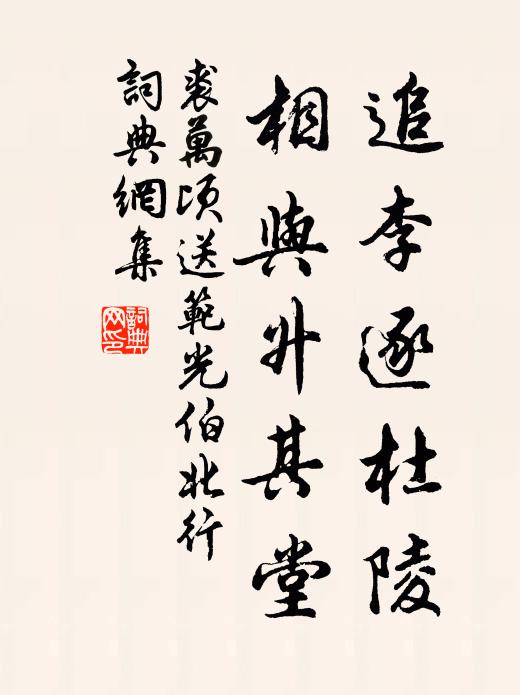 追李逐杜陵
相與升其堂
裘萬頃送範光伯北行
詞典網集
詞典網印